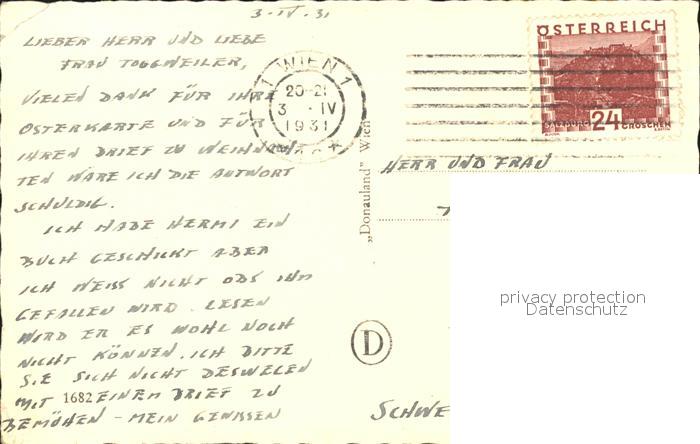 3-IV-31
LIEBER HERR UND LIEBE
FRAU TOGGWEILER,
VIELEN DANK FÜR IHRE
OSTERKARTE UND FÜR
IHREN BRIEF ZU WEIHNACH
TEN WÄRE ICH DIE ANTWORT
SCHULDIG.
ICH HABE HERMI EIN
BUCH GESCHICKT ABER
ICH WEISS NICHT OBS IHM
GEFALLEN WIRD. LESEN
WIRD ER ES WOHL NOCH
NICHT KÖNNEN. ICH BITTE
SIE SICH NICHT DESWEGEN
MIT EINEM BRIEF ZU
BEMÜHEN - MEIN GEWISSEN
1682
1 WIEN 1
20-21
3 · IV
1931
„Donauland" Wien
D
ÖSTERREICH
24
GROSCHEN
HERR UND FRAU
SCHWE
privacy protection
Datenschutz